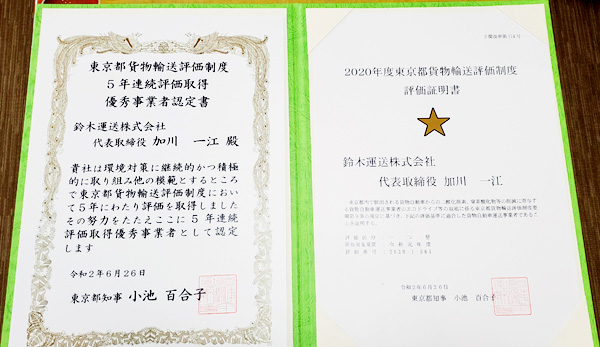 東京都貨物輸送評価制度
5年連続評価取得
優秀事業者認定書
鈴木運送株式会社
代表取締役 加川 一江 殿
貴社は環境対策に継続的かつ積極
的に取り組み他の模範とするところ
で東京都貨物輸送評価制度におい
て5年にわたり評価を取得しました
その努力をたたえここに5年連続
評価取得優秀事業者として認定
します
令和2年6月26日
東京都知事 小池 百合子
2020年度東京都貨物輸送評価制度
評価証明書
鈴木運送株式会社
代表取締役 加川 一江
令和2年6月26日
東京都知事 小池 百合子